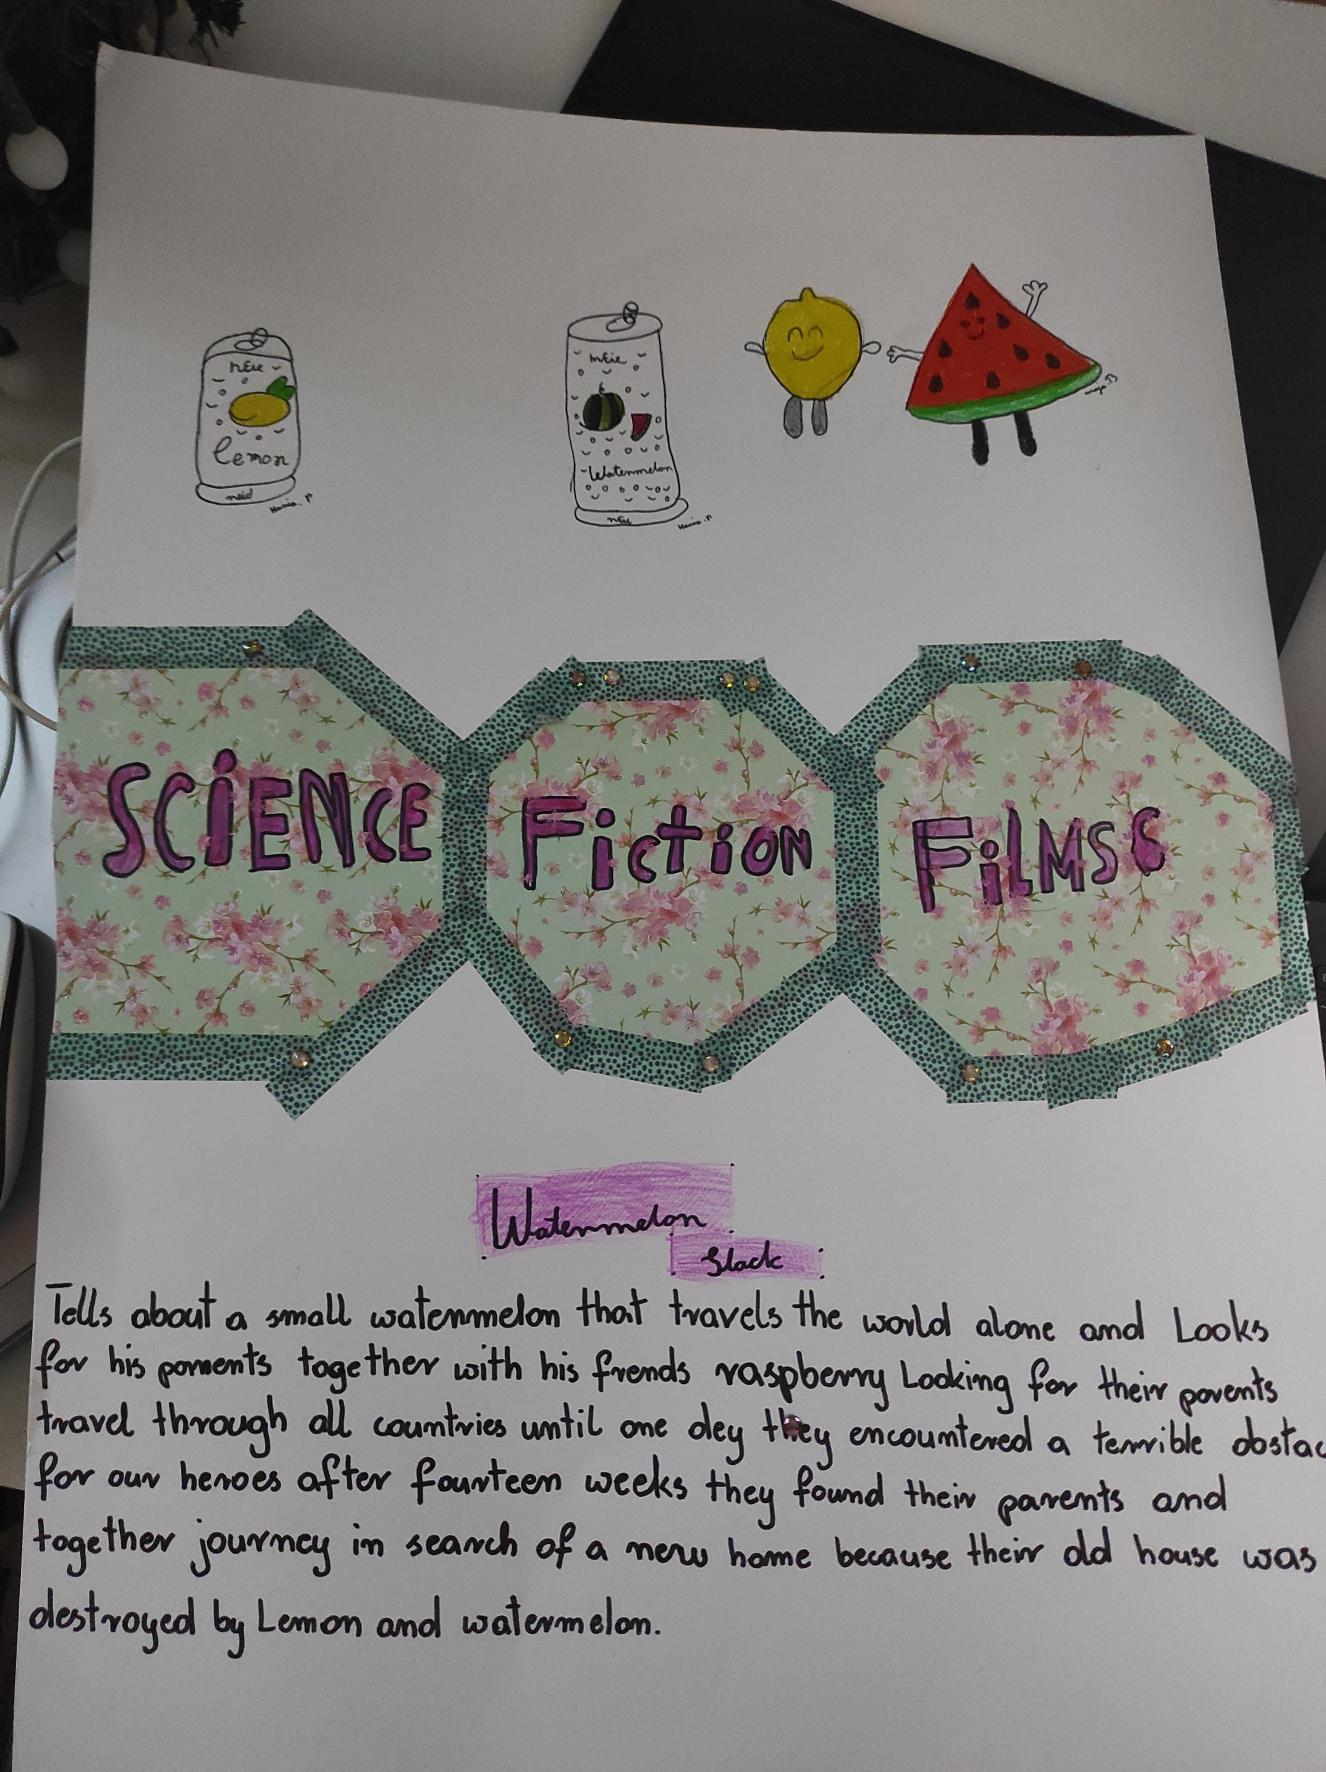 lemon
Watermelon
SCiENCE Fiction FilMS
Watermelon
Slack
Tells about a small watermelon that travels the world alone and Looks
for his parents together with his frends raspberry Looking for their parents
travel through all countries until one dey they encountered a terrible obstac
for our heroes after fourteen weeks they found their parents and
together journey in search of a new home because their old house was
destroyed by Lemon and watermelon.